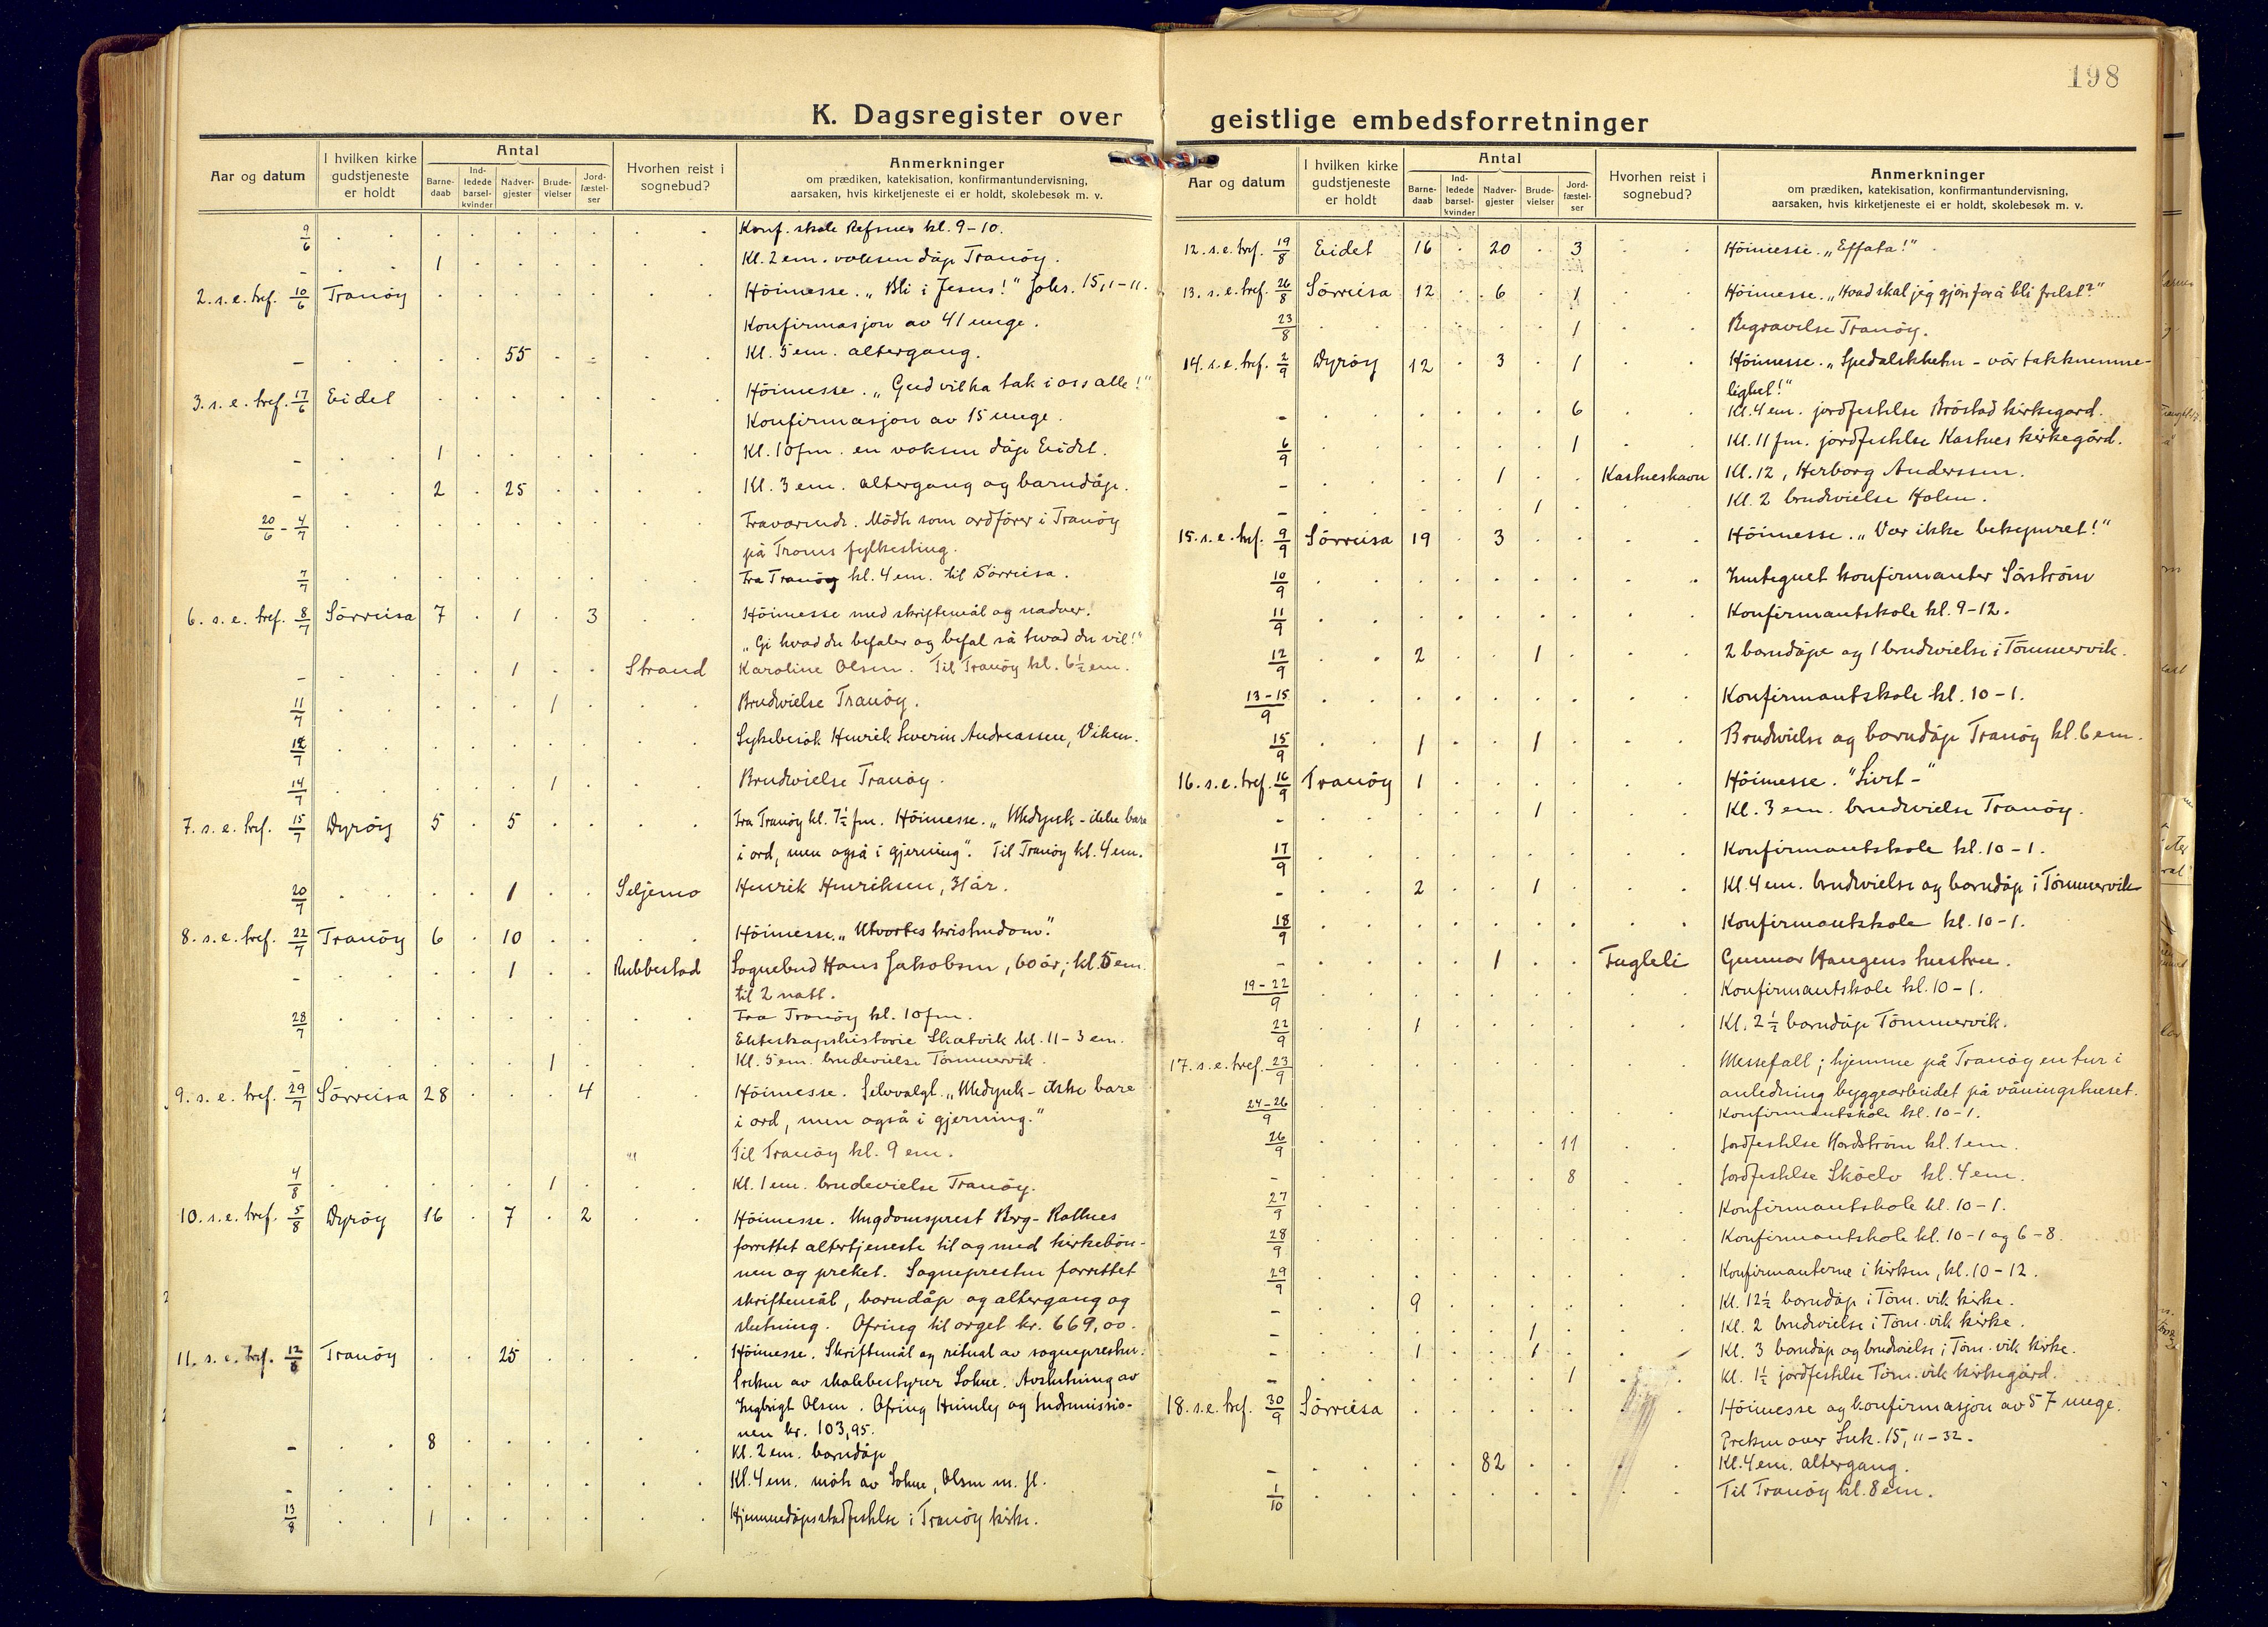 198
K. Dagsregister over geistlige embedsforretninger
Aar og datum
I hvilken kirke gudstjeneste er holdt
Antal
Barne-daab
Ind-ledede barsel-kvinder
Nadver-gjester
Brude-vielser
Jord-fæstel-ser
Hvorhen reist i sognebud?
Anmerkninger
om prædiken, katekisation, konfirmantundervisning,
aarsaken, hvis kirketjeneste ei er holdt, skolebesøk m. v.
9/6 Konf. skole Refsnes kl. 9-10.
- 1 Kl. 2 em. voksen dåp Tranöy.
2. s. e. tref. 10/6 Tranöy Höimesse. „Bli i Jesus!" Johs. 15,1-11.
Konfirmasjon av 41 unge.
- 55 Kl. 5 em. altergang.
3. s. e. tref. 17/6 Eidet Höimesse. „Gud vil ha tak i oss alle!"
Konfirmasjon av 15 unge.
- 1 Kl. 10 fm. en voksen dåp Eidet.
- 2 25 Kl. 3 em. altergang og barndåp.
20/6 - 4/7 Fraværende. Mödte som ordförer i Tranöy
på Troms fylkesting.
7/7 Fra Tranöy kl. 4 em. til Sörreisa.
6. s. e. tref. 8/7 Sörreisa 7 1 3 Höimesse med skriftemål og nadver.
„Gi hvad du befaler og befal så hvad du vil!"
- 1 Strand Karoline Olsen. Til Tranöy kl. 6½ em.
11/7 1 Brudvielse Tranöy.
12/7 Sykebesök Henrik Severin Andreassen, Viken.
14/7 1 Brudvielse Tranöy.
7. s. e. tref. 15/7 Dyröy 5 5 Fra Tranöy kl. 7½ fm. Höimesse. „Medynk - ikke bare
i ord, men også i gjerning". Til Tranöy kl. 4 em.
20/7 1 Seljemo Henrik Henriksen, 31 år.
8. s. e. tref. 22/7 Tranöy 6 10 Höimesse. „Utvortes kristendom".
- 1 Rubbestad Sognebud Hans Jakobsen, 60 år; kl. 5 em.
til 2 natt.
28/7 Fra Tranöy kl. 10 fm.
Ekteskapshistorie Skatvik kl. 11-3 em.
- 1 Kl. 5 em. brudevielse Tömmervik.
9. s. e. tref. 29/7 Sörreisa 28 4 Höimesse. Selvvalgt. „Medynk - ikke bare
i ord, men også i gjerning."
Til Tranöy kl. 9 em.
4/8 1 Kl. 1 em. brudevielse Tranöy.
10. s. e. tref. 5/8 Dyröy 16 7 2 Höimesse. Ungdomsprest Berg-
forrettet altertjeneste til og med kirkebön-
nen og preket. Sognepresten forrettet
skriftemål, barndåp og altergang og
slutning. Ofring til orget kr. 669,00.
11. s. e. tref. 12/8 Tranöy 25 Höimesse. Skriftemål og ritual av sognepresten.
Preken av skolebestyrer Avslutning av
Ingbrigt Olsen. Ofring og Indremissio-
nen kr. 103,95.
- 8 Kl. 2 em. barndåp
- Kl. 4 em. möte av Olsen m. fl.
13/8 1 Hjemmedåpsstadfestelse i Tranöy kirke.
Aar og datum
I hvilken kirke gudstjeneste er holdt
Antal
Barne-daab
Ind-ledede barsel-kvinder
Nadver-gjester
Brude-vielser
Jord-fæstel-ser
Hvorhen reist i sognebud?
Anmerkninger
om prædiken, katekisation, konfirmantundervisning,
aarsaken, hvis kirketjeneste ei er holdt, skolebesøk m. v.
12. s. e. tref. 19/8 Eidet 16 20 3 Höimesse. „Effata!"
13. s. e. tref. 26/8 Sörreisa 12 6 1 Höimesse. „Hvad skal jeg gjöre for å bli frelst?"
23/8 1 Begravelse Tranöy.
14. s. e. tref. 2/9 Dyröy 12 3 1 Höimesse. „Spedalskheten - vår takknemme-
lighet!"
- 6 Kl. 4 em. jordfestelse Bröstad kirkegard.
6/9 1 Kl. 11 fm. jordfestelse Kastnes kirkegård.
- 1 Kastneshavn Kl. 12, Herborg Anderssen.
- 1 Kl. 2 brudvielse Holm.
15. s. e. tref. 9/9 Sörreisa 19 3 Höimesse. „Vær ikke bekymret!"
10/9 Inntegnet konfirmanter Sörström
11/9 Konfirmantskole kl. 9-12.
12/9 2 1 2 barndåpe og 1 brudvielse i Tömmervik.
13-15/9 Konfirmantskole kl. 10-1.
15/9 1 1 Brudvielse og barndåp Tranöy kl. 6 em.
16. s. e. tref. 16/9 Tranöy 1 Höimesse. "Livet-"
- 1 Kl. 3 em. brudvielse Tranöy.
17/9 Konfirmantskole kl. 10-1.
- 2 1 Kl. 4 em. brudvielse og barndåp i Tömmervik
18/9 Konfirmantskole kl. 10-1.
- 1 Fugleli Gunnar Haugens hustru.
19-22/9 Konfirmantskole kl. 10-1.
22/9 1 Kl. 2½ barndåp Tömmervik.
17. s. e. tref. 23/9 Messefall; hjemme på Tranöy en tur i
anledning byggearbeidet på våningshuset.
24-26/9 Konfirmantskole kl. 10-1.
26/9 11 Jordfestelse kl. 1 em.
- 8 Jordfestelse Sköelv kl. 4 em.
27/9 Konfirmantskole kl. 10-1.
28/9 Konfirmantskole kl. 10-1 og 6-8.
29/9 Konfirmanterne i kirken, kl. 10-12.
- 9 Kl. 12½ barndåp i Töm. vik kirke.
- 1 Kl. 2 brudvielse i Töm. vik kirke.
- 1 1 Kl. 3 barndåp og brudvielse i Töm. vik kirke.
- 1 Kl. 1½ jordfestelse Töm. vik kirkegård.
18. s. e. tref. 30/9 Sörreisa Höimesse og konfirmasjon av 57 unge.
Preken over Luk. 15, 11-32.
- 82 Kl. 4 em. altergang.
1/10 Til Tranöy kl. 8 em.